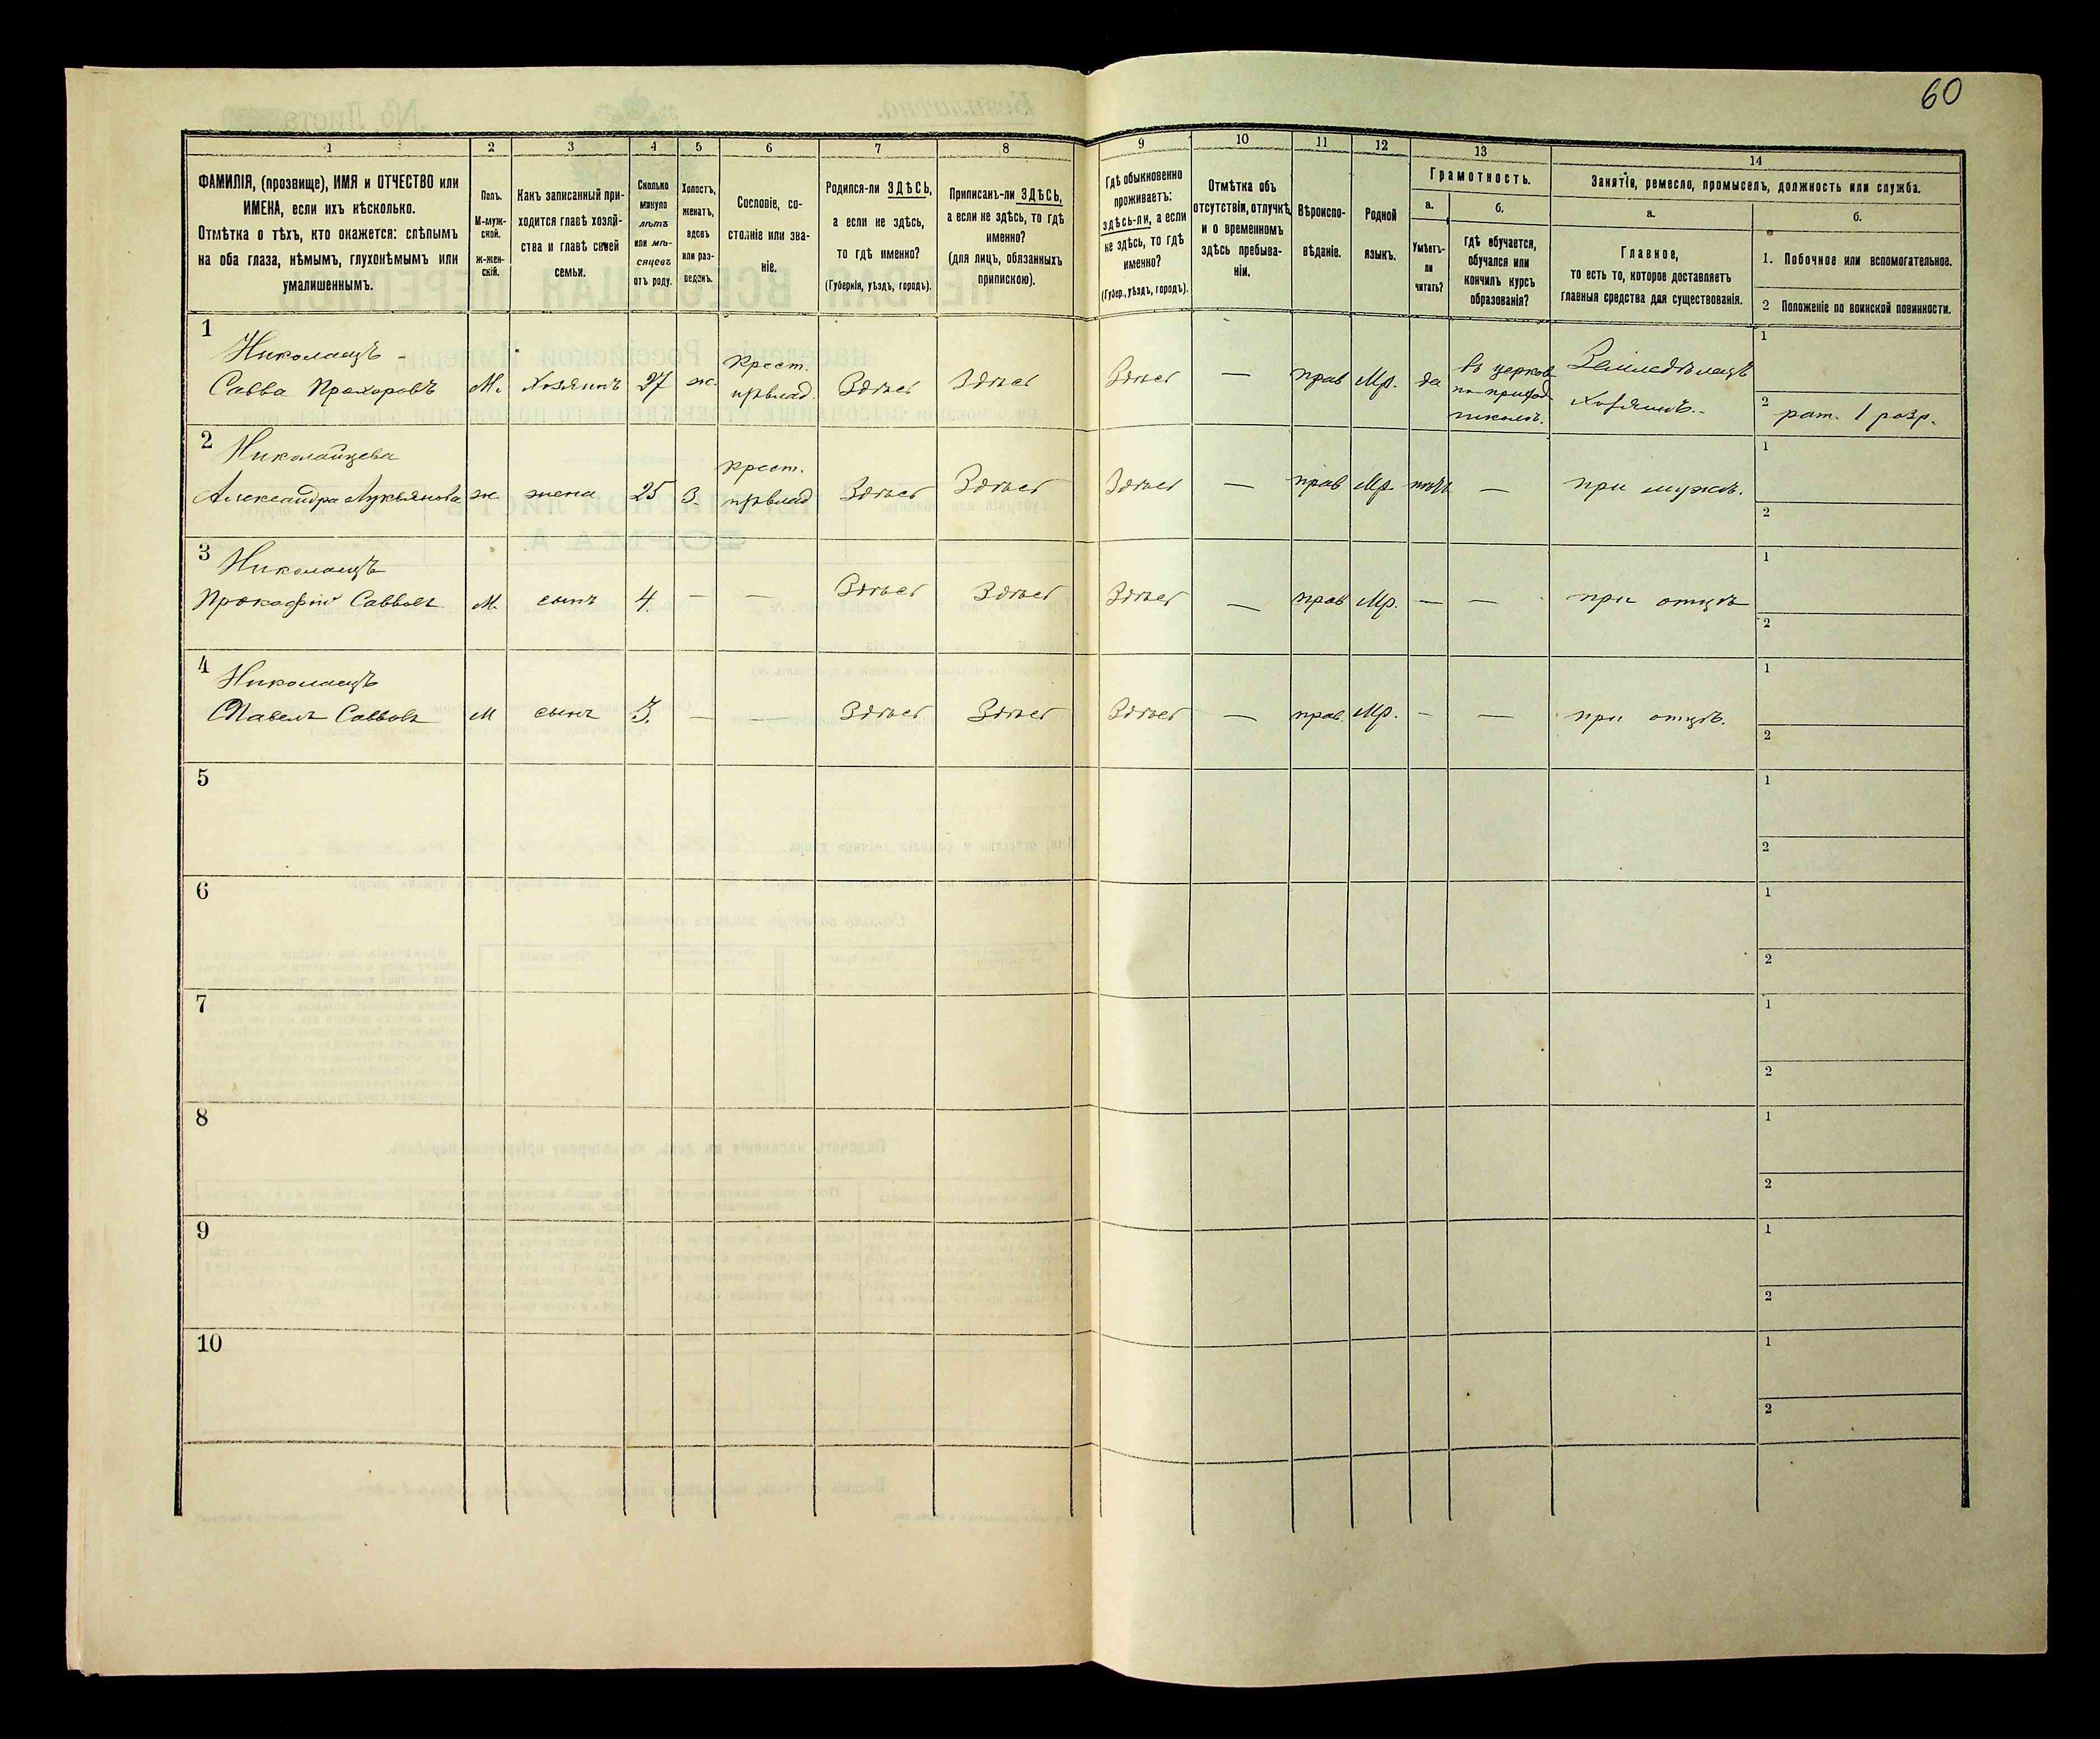 60
1
2
3
4
5
6
7
8
9
10
11
12
13
14
ФАМИЛІЯ, (прозвище), ИМЯ и ОТЧЕСТВО или
ИМЕНА, если ихъ нѣсколько.
Отмѣтка о тѣхъ, кто окажется: слѣпымъ
на оба глаза, нѣмымъ, глухонѣмымъ или
умалишеннымъ.
Полъ.
М-муж-
ской.
ж-жен-
скій.
Какъ записанный при-
ходится главѣ хозяй-
ства и главѣ своей
семьи.
Сколько
минуло
лѣтъ
или мѣ-
сяцевъ
отъ роду.
Холостъ,
женатъ,
вдовъ
или раз-
веденъ.
Сословіе, со-
стояніе или зва-
ніе.
Родился-ли ЗДѢСЬ,
а если не здѣсь,
то гдѣ именно?
(Губернія, уѣздъ, городъ).
Приписанъ-ли ЗДѢСЬ,
а если не здѣсь, то гдѣ
именно?
(для лицъ, обязанныхъ
припискою).
Гдѣ обыкновенно
проживаетъ:
здѣсь-ли, а если
не здѣсь, то гдѣ
именно?
(Губер., уѣздъ, городъ).
Отмѣтка объ
отсутствіи, отлучкѣ
и о временномъ
здѣсь пребыва-
ніи.
Вѣроиспо-
вѣданіе.
Родной
языкъ.
Грамотность.
а.
б.
Умѣетъ-
ли
читать?
гдѣ обучается,
обучался или
кончилъ курсъ
образованія?
Занятіе, ремесло, промыселъ, должность или служба.
а.
б.
Главное,
то есть то, которое доставляетъ
главныя средства для существованія.
1. Побочное или вспомогательное.
2 Положеніе по воинской повинности.
1
Николаецъ -
Савва Прохоровъ
М.
хозяинъ
27
ж.
Крест.
Здѣсь
Здѣсь
Здѣсь
—
прав
Мр.
да
въ церков
по-приход
школѣ.
Земледѣлецъ
хозяинъ.-
1
2
рат. 1 разр.
2
Николайцева
Александра Лукьянова
ж.
жена
25
З.
Крест.
Здѣсь
Здѣсь
Здѣсь
—
прав
Мр.
нѣтъ
—
при мужѣ.
1
2
3
Николаецъ
Прокофій Саввовъ
М.
сынъ
4.
—
—
Здѣсь
Здѣсь
Здѣсь
—
прав
Мр.
—
—
при отцѣ
1
2
4
Николаецъ
Павелъ Саввовъ
М
сынъ
3.
—
—
Здѣсь
Здѣсь
Здѣсь
—
прав.
Мр.
-
—
при отцѣ.
1
2
5
1
2
6
1
2
7
1
2
8
1
2
9
1
2
10
1
2